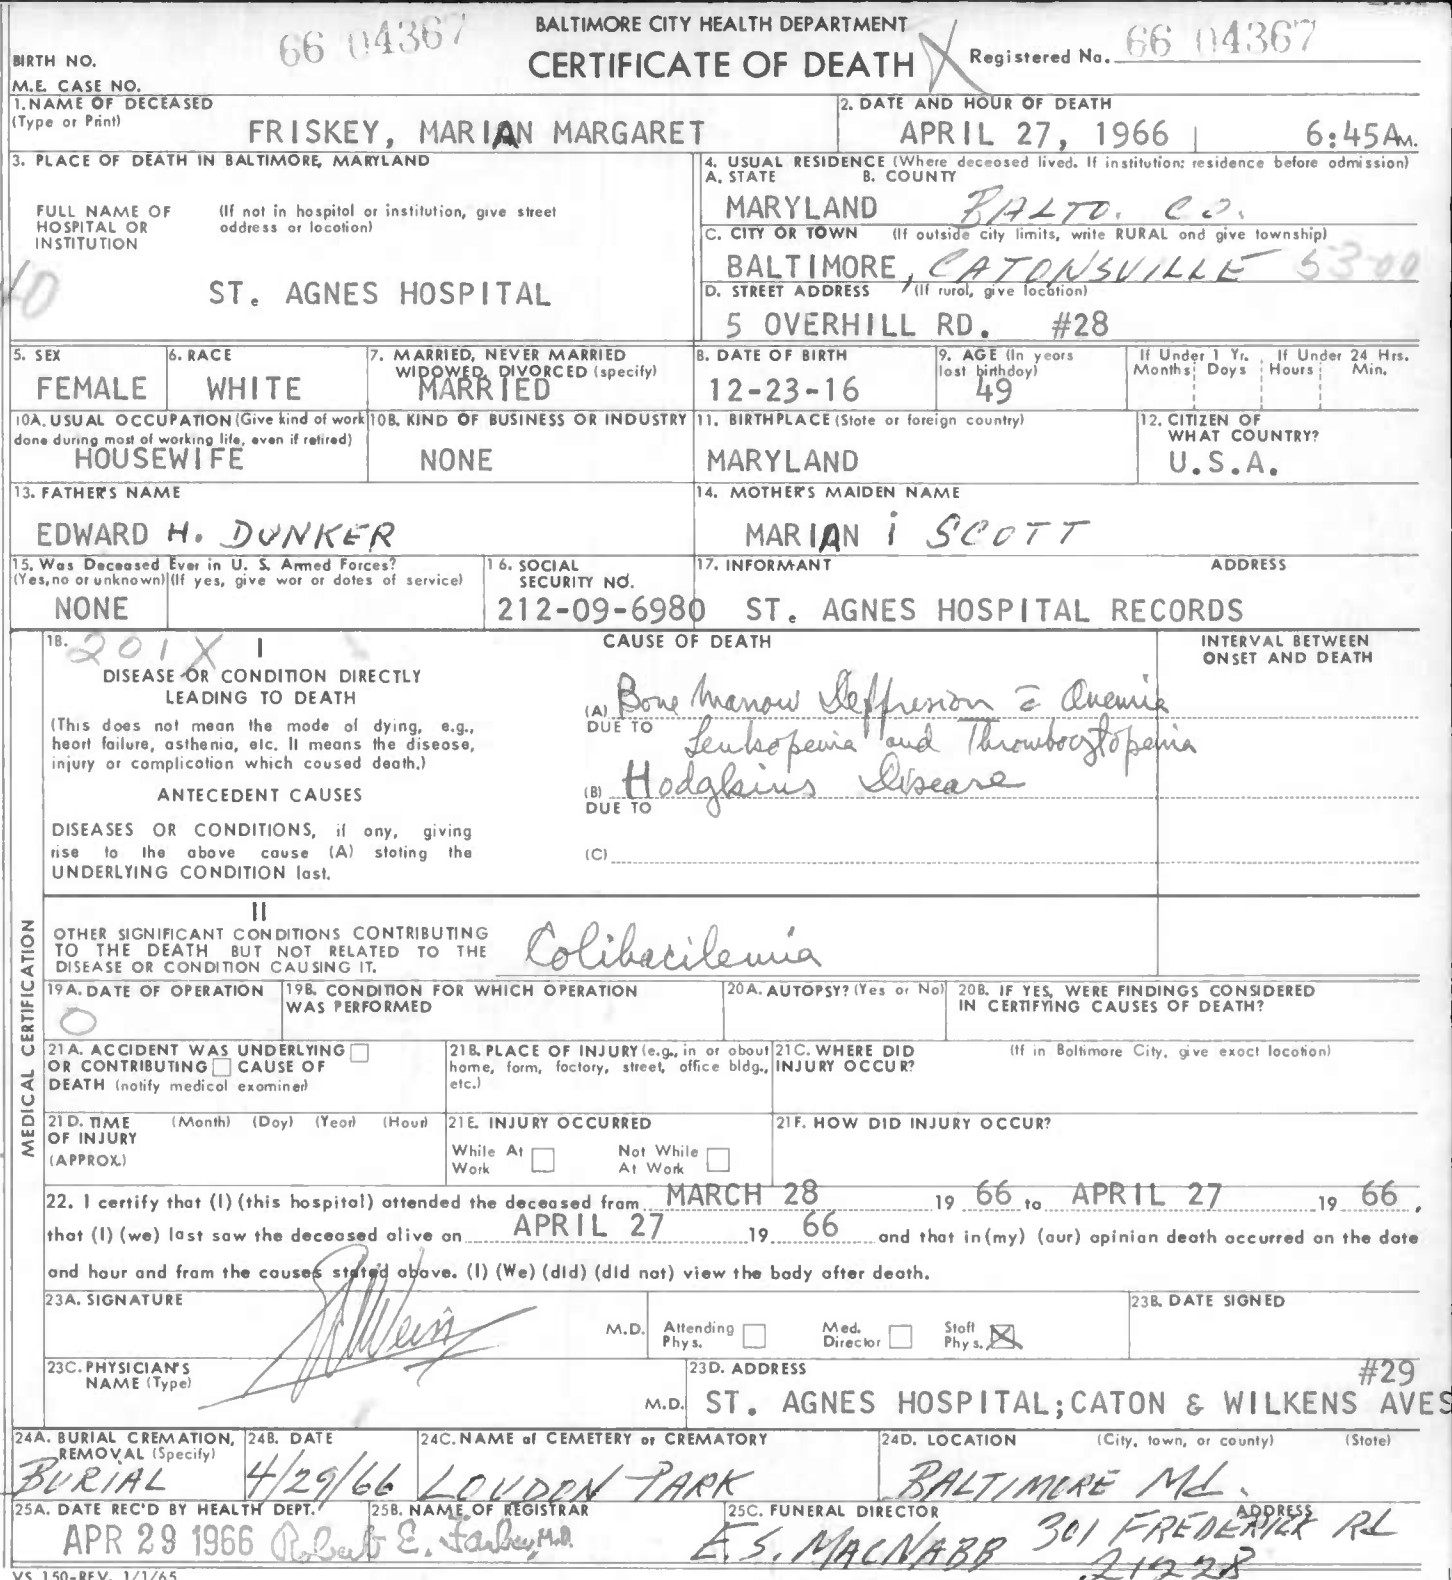 BALTIMORE CITY HEALTH DEPARTMENT
66 04367
CERTIFICATE OF DEATH
Registered No. 66 04367
BIRTH NO.
M.E. CASE NO.
1. NAME OF DECEASED
(Type or Print)
FRISKEY, MARIAN MARGARET
2. DATE AND HOUR OF DEATH
APRIL 27, 1966 | 6:45AM.
3. PLACE OF DEATH IN BALTIMORE, MARYLAND
FULL NAME OF HOSPITAL OR INSTITUTION
(If not in hospital or institution, give street address or location)
ST. AGNES HOSPITAL
40
4. USUAL RESIDENCE (Where deceased lived. If institution: residence before admission)
A. STATE B. COUNTY
MARYLAND BALTO. CO.
C. CITY OR TOWN (If outside city limits, write RURAL and give township)
BALTIMORE, CATONSVILLE 53-00
D. STREET ADDRESS (If rural, give location)
5 OVERHILL RD. #28
5. SEX
FEMALE
6. RACE
WHITE
7. MARRIED, NEVER MARRIED
WIDOWED, DIVORCED (specify)
MARRIED
8. DATE OF BIRTH
12-23-16
9. AGE (In years last birthday)
49
If Under 1 Yr. Months Days
If Under 24 Hrs. Hours Min.
10A. USUAL OCCUPATION (Give kind of work done during most of working life, even if retired)
HOUSEWIFE
10B. KIND OF BUSINESS OR INDUSTRY
NONE
11. BIRTHPLACE (State or foreign country)
MARYLAND
12. CITIZEN OF WHAT COUNTRY?
U.S.A.
13. FATHER'S NAME
EDWARD H. DUNKER
14. MOTHER'S MAIDEN NAME
MARIAN i SCOTT
15. Was Deceased Ever in U. S. Armed Forces?
(Yes, no or unknown) (If yes, give war or dates of service)
NONE
16. SOCIAL SECURITY NO.
212-09-6980
17. INFORMANT ADDRESS
ST. AGNES HOSPITAL RECORDS
MEDICAL CERTIFICATION
18. 201X I
CAUSE OF DEATH
INTERVAL BETWEEN ONSET AND DEATH
DISEASE OR CONDITION DIRECTLY
LEADING TO DEATH
(This does not mean the mode of dying, e.g.,
heart failure, asthenia, etc. It means the disease,
injury or complication which caused death.)
(A) Bone Marrow Deppresion c̄ Anemia
DUE TO Leukopenia and Thrombocytopenia
ANTECEDENT CAUSES
(B) Hodgkins Disease
DUE TO
DISEASES OR CONDITIONS, if any, giving
rise to the above cause (A) stating the
UNDERLYING CONDITION last.
(C)
II
OTHER SIGNIFICANT CONDITIONS CONTRIBUTING
TO THE DEATH BUT NOT RELATED TO THE
DISEASE OR CONDITION CAUSING IT.
Colibacilemia
19A. DATE OF OPERATION
0
19B. CONDITION FOR WHICH OPERATION WAS PERFORMED
20A. AUTOPSY? (Yes or No)
20B. IF YES, WERE FINDINGS CONSIDERED IN CERTIFYING CAUSES OF DEATH?
21A. ACCIDENT WAS UNDERLYING
OR CONTRIBUTING CAUSE OF
DEATH (notify medical examiner)
21B. PLACE OF INJURY (e.g., in or about home, farm, factory, street, office bldg., etc.)
21C. WHERE DID INJURY OCCUR? (If in Baltimore City, give exact location)
21D. TIME OF INJURY (APPROX.) (Month) (Day) (Year) (Hour)
21E. INJURY OCCURRED
While At Work Not While At Work
21F. HOW DID INJURY OCCUR?
22. I certify that (I) (this hospital) attended the deceased from MARCH 28 19 66 to APRIL 27 19 66,
that (I) (we) last saw the deceased alive on APRIL 27 19 66 and that in (my) (our) opinion death occurred on the date
and hour and from the causes stated above. (I) (We) (did) (did not) view the body after death.
23A. SIGNATURE
M.D.
Attending Phys. Med. Director Staff Phys.
23B. DATE SIGNED
23C. PHYSICIAN'S NAME (Type)
M.D.
23D. ADDRESS #29
ST. AGNES HOSPITAL;CATON & WILKENS AVES
24A. BURIAL CREMATION, REMOVAL (Specify)
BURIAL
24B. DATE
4/29/66
24C. NAME of CEMETERY or CREMATORY
LOUDON PARK
24D. LOCATION (City, town, or county) (State)
BALTIMORE Md.
25A. DATE REC'D BY HEALTH DEPT.
APR 29 1966
25B. NAME OF REGISTRAR
Robert E. Farber, M.D.
25C. FUNERAL DIRECTOR ADDRESS
E.S. MACNABB 301 FREDERICK Rd
21228
VS 150-REV. 1/1/65